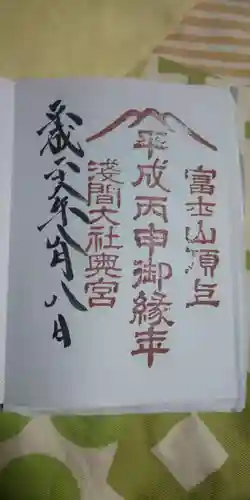 富士山頂上
平成丙申御縁年
淺間大社奥宮
平成二八年八月八日